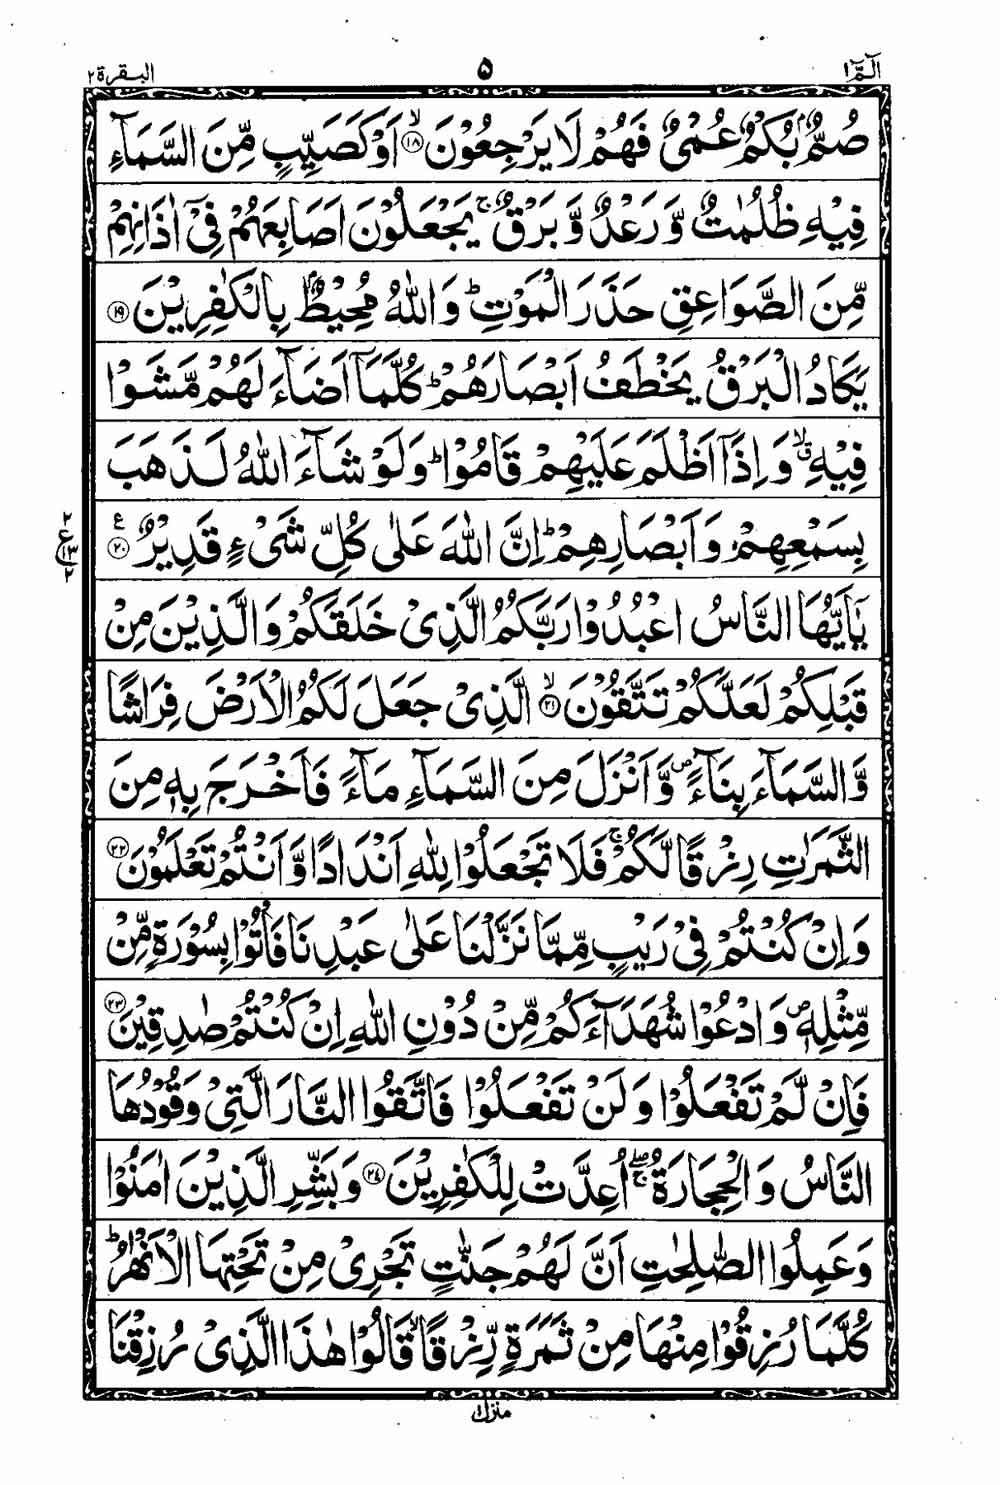 الٓمّٓ ۱ ۵ البقرة ۲
صُمٌّۢ بُكْمٌ عُمْیٌ فَهُمْ لَا یَرْجِعُوْنَ ۙ﴿۱۸﴾ اَوْ كَصَیِّبٍ مِّنَ السَّمَآءِ
فِیْهِ ظُلُمٰتٌ وَّ رَعْدٌ وَّ بَرْقٌ ۚ یَجْعَلُوْنَ اَصَابِعَهُمْ فِیْۤ اٰذَانِهِمْ
مِّنَ الصَّوَاعِقِ حَذَرَ الْمَوْتِ ؕ وَ اللّٰهُ مُحِیْطٌۢ بِالْكٰفِرِیْنَ ﴿۱۹﴾
یَكَادُ الْبَرْقُ یَخْطَفُ اَبْصَارَهُمْ ؕ كُلَّمَاۤ اَضَآءَ لَهُمْ مَّشَوْا
فِیْهِ ۙۗ وَ اِذَاۤ اَظْلَمَ عَلَیْهِمْ قَامُوْا ؕ وَ لَوْ شَآءَ اللّٰهُ لَذَهَبَ
بِسَمْعِهِمْ وَ اَبْصَارِهِمْ ؕ اِنَّ اللّٰهَ عَلٰی كُلِّ شَیْءٍ قَدِیْرٌ ﴿۲۰﴾ ع
۲ ع ۱۳ ۲
یٰۤاَیُّهَا النَّاسُ اعْبُدُوْا رَبَّكُمُ الَّذِیْ خَلَقَكُمْ وَ الَّذِیْنَ مِنْ
قَبْلِكُمْ لَعَلَّكُمْ تَتَّقُوْنَ ۙ﴿۲۱﴾ الَّذِیْ جَعَلَ لَكُمُ الْاَرْضَ فِرَاشًا
وَّ السَّمَآءَ بِنَآءً ۪ وَّ اَنْزَلَ مِنَ السَّمَآءِ مَآءً فَاَخْرَجَ بِهٖ مِنَ
الثَّمَرٰتِ رِزْقًا لَّكُمْ ۚ فَلَا تَجْعَلُوْا لِلّٰهِ اَنْدَادًا وَّ اَنْتُمْ تَعْلَمُوْنَ ﴿۲۲﴾
وَ اِنْ كُنْتُمْ فِیْ رَیْبٍ مِّمَّا نَزَّلْنَا عَلٰی عَبْدِنَا فَاْتُوْا بِسُوْرَةٍ مِّنْ
مِّثْلِهٖ ۪ وَ ادْعُوْا شُهَدَآءَكُمْ مِّنْ دُوْنِ اللّٰهِ اِنْ كُنْتُمْ صٰدِقِیْنَ ﴿۲۳﴾
فَاِنْ لَّمْ تَفْعَلُوْا وَ لَنْ تَفْعَلُوْا فَاتَّقُوا النَّارَ الَّتِیْ وَقُوْدُهَا
النَّاسُ وَ الْحِجَارَةُ ۖۚ اُعِدَّتْ لِلْكٰفِرِیْنَ ﴿۲۴﴾ وَ بَشِّرِ الَّذِیْنَ اٰمَنُوْا
وَ عَمِلُوا الصّٰلِحٰتِ اَنَّ لَهُمْ جَنّٰتٍ تَجْرِیْ مِنْ تَحْتِهَا الْاَنْهٰرُ ؕ
كُلَّمَا رُزِقُوْا مِنْهَا مِنْ ثَمَرَةٍ رِّزْقًا ۙ قَالُوْا هٰذَا الَّذِیْ رُزِقْنَا
منزل ۱